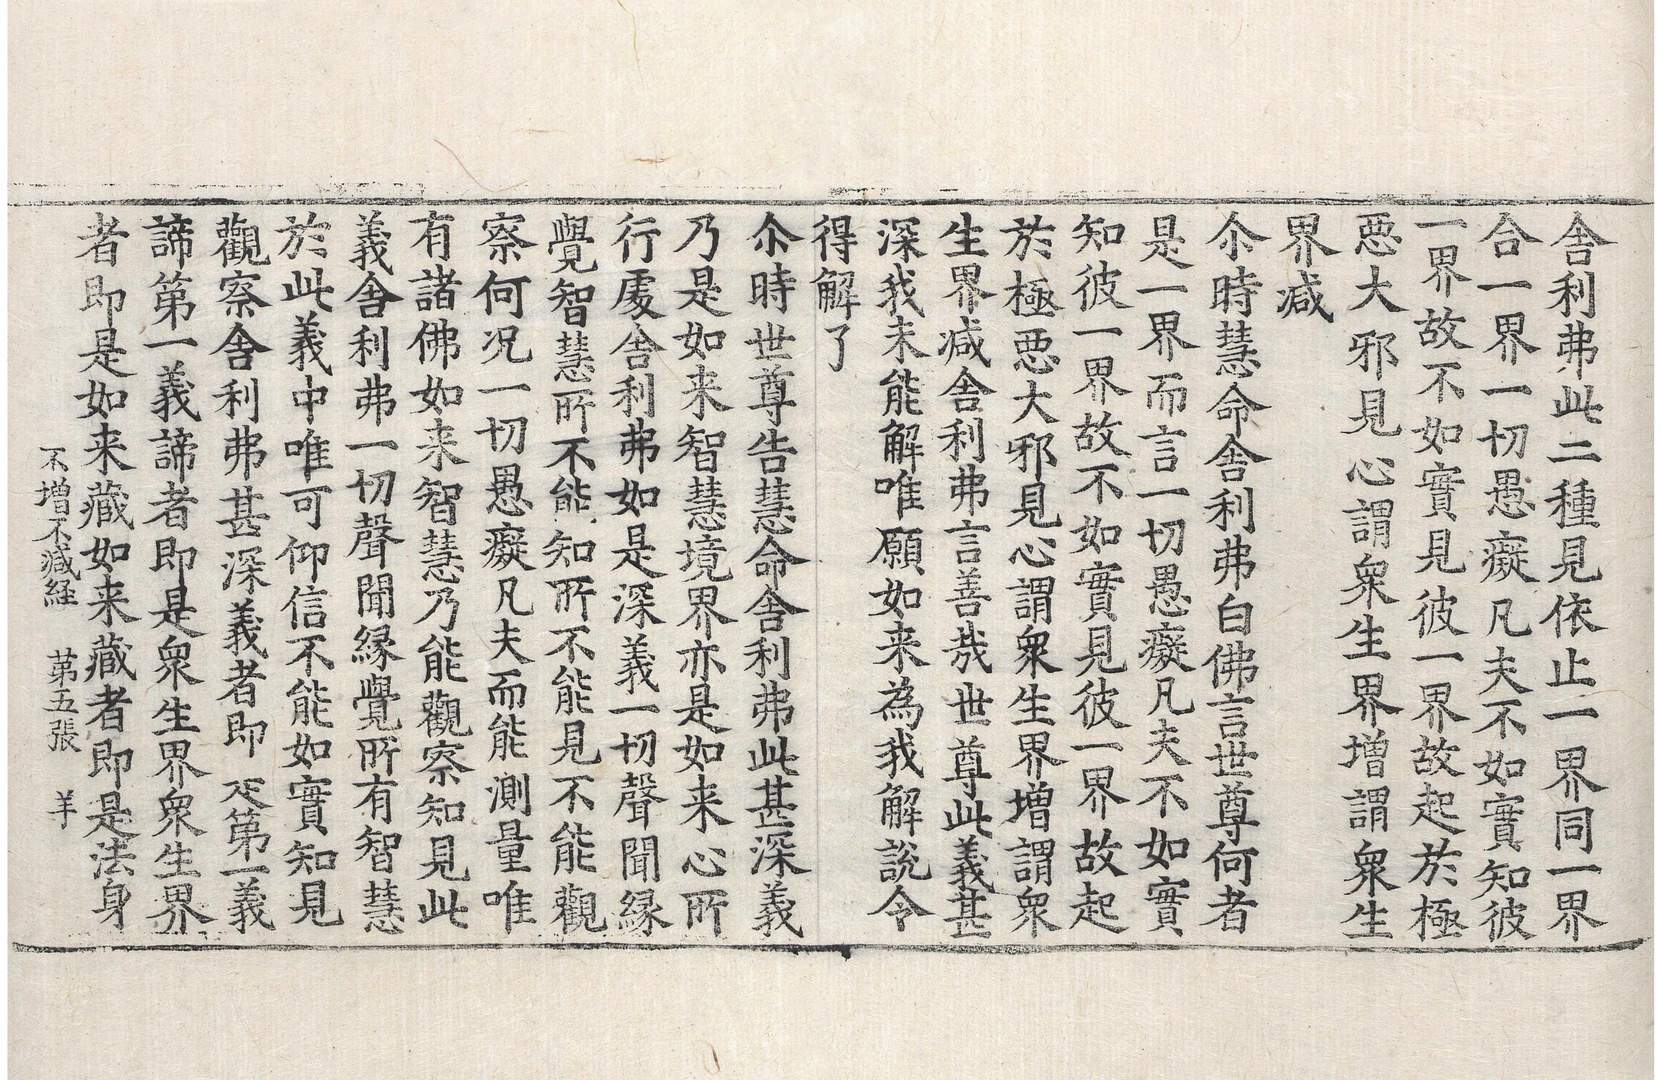 舎利弗此二種見依止一界同一界
合一界一切愚癡凡夫不如實知彼
一界故不如實見彼一界故起於極
惡大邪見心謂衆生界増謂衆生
界减
尒時慧命舎利弗白佛言世尊何者
是一界而言一切愚癡凡夫不如實
知彼一界故不如實見彼一界故起
於極惡大邪見心謂衆生界増謂衆
生界减舎利弗言善哉世尊此義甚
深我未能解唯願如来為我解說令
得解了
尒時世尊告慧命舎利弗此甚深義
乃是如来智慧境界亦是如来心所
行處舎利弗如是深義一切聲聞縁
覺智慧所不能知所不能見不能觀
察何况一切愚癡凡夫而能測量唯
有諸佛如来智慧乃能觀察知見此
義舎利弗一切聲聞縁覺所有智慧
於此義中唯可仰信不能如實知見
觀察舎利弗甚深義者即是第一義
諦第一義諦者即是衆生界衆生界
者即是如来藏如来藏者即是法身
不増不减経　第五張　羊